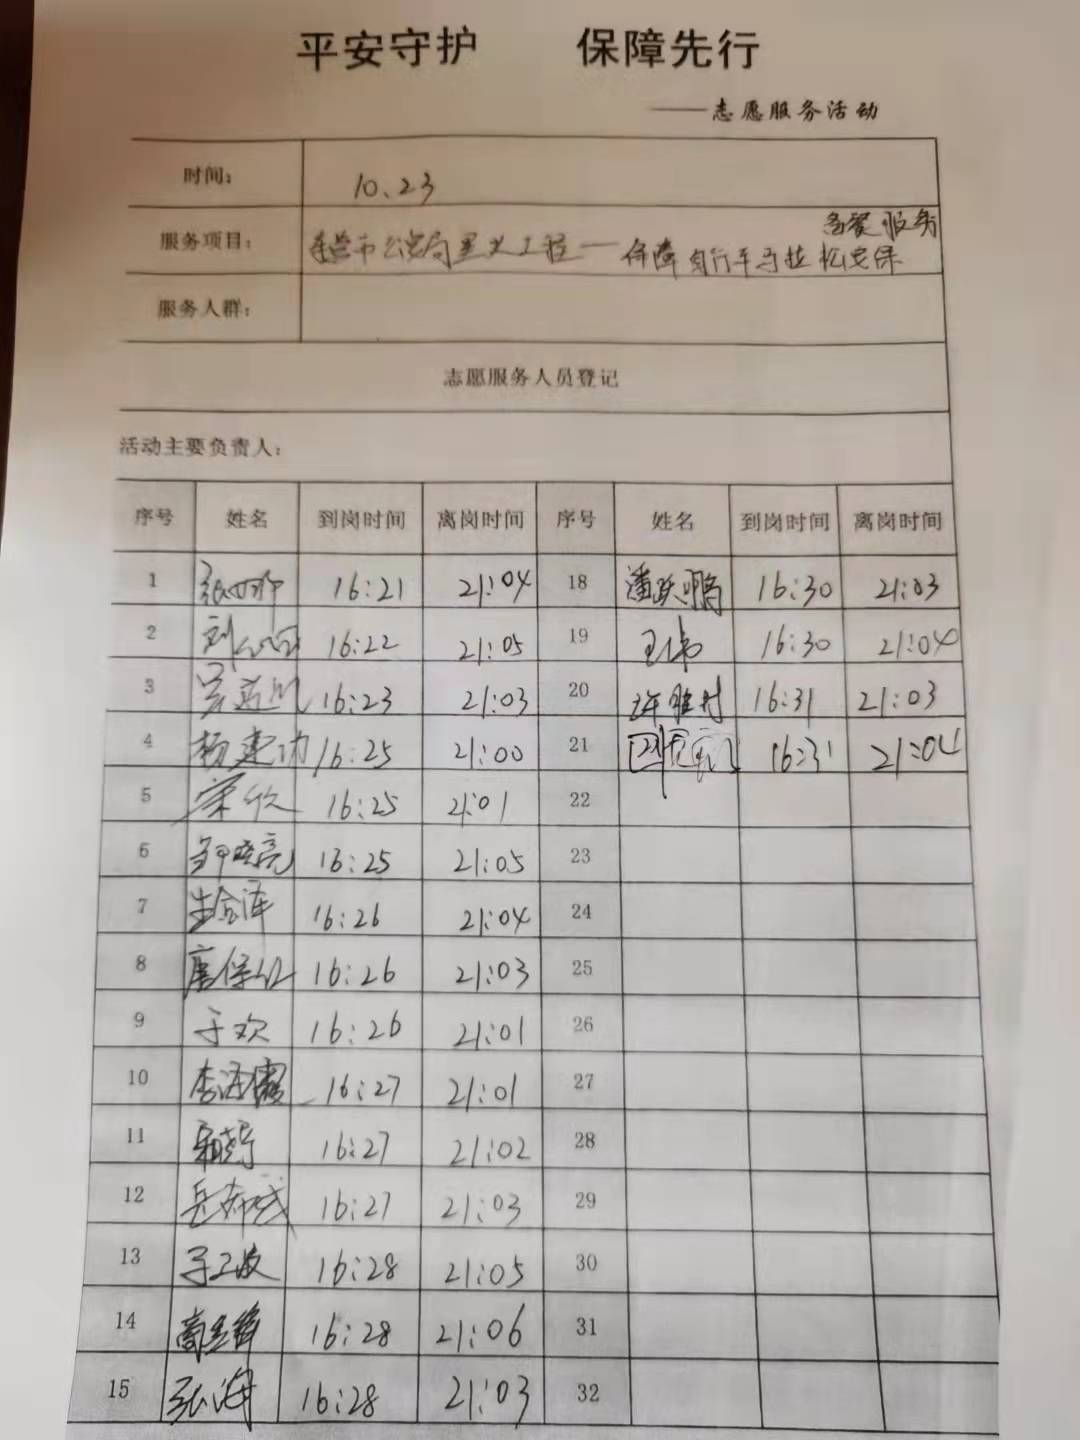 平安守护 保障先行
——志愿服务活动
时间： 10.23
备餐服务
服务项目： 公安局 工程——保障自行车马拉松安保
服务人群：
志愿服务人员登记
活动主要负责人：
序号 姓名 到岗时间 离岗时间 序号 姓名 到岗时间 离岗时间
1 16:21 21:04 18 潘跃鹏 16:30 21:03
2 16:22 21:05 19 王伟 16:30 21:04
3 16:23 21:03 20 许胜村 16:31 21:03
4 杨建功 16:25 21:00 21 16:31 21:04
5 荣欣 16:25 21:01 22
6 邹晓亮 16:25 21:05 23
7 生金泽 16:26 21:04 24
8 唐保 16:26 21:03 25
9 于欢 16:26 21:01 26
10 李 16:27 21:01 27
11 16:27 21:02 28
12 岳 16:27 21:03 29
13 16:28 21:05 30
14 16:28 21:06 31
15 张海 16:28 21:03 32